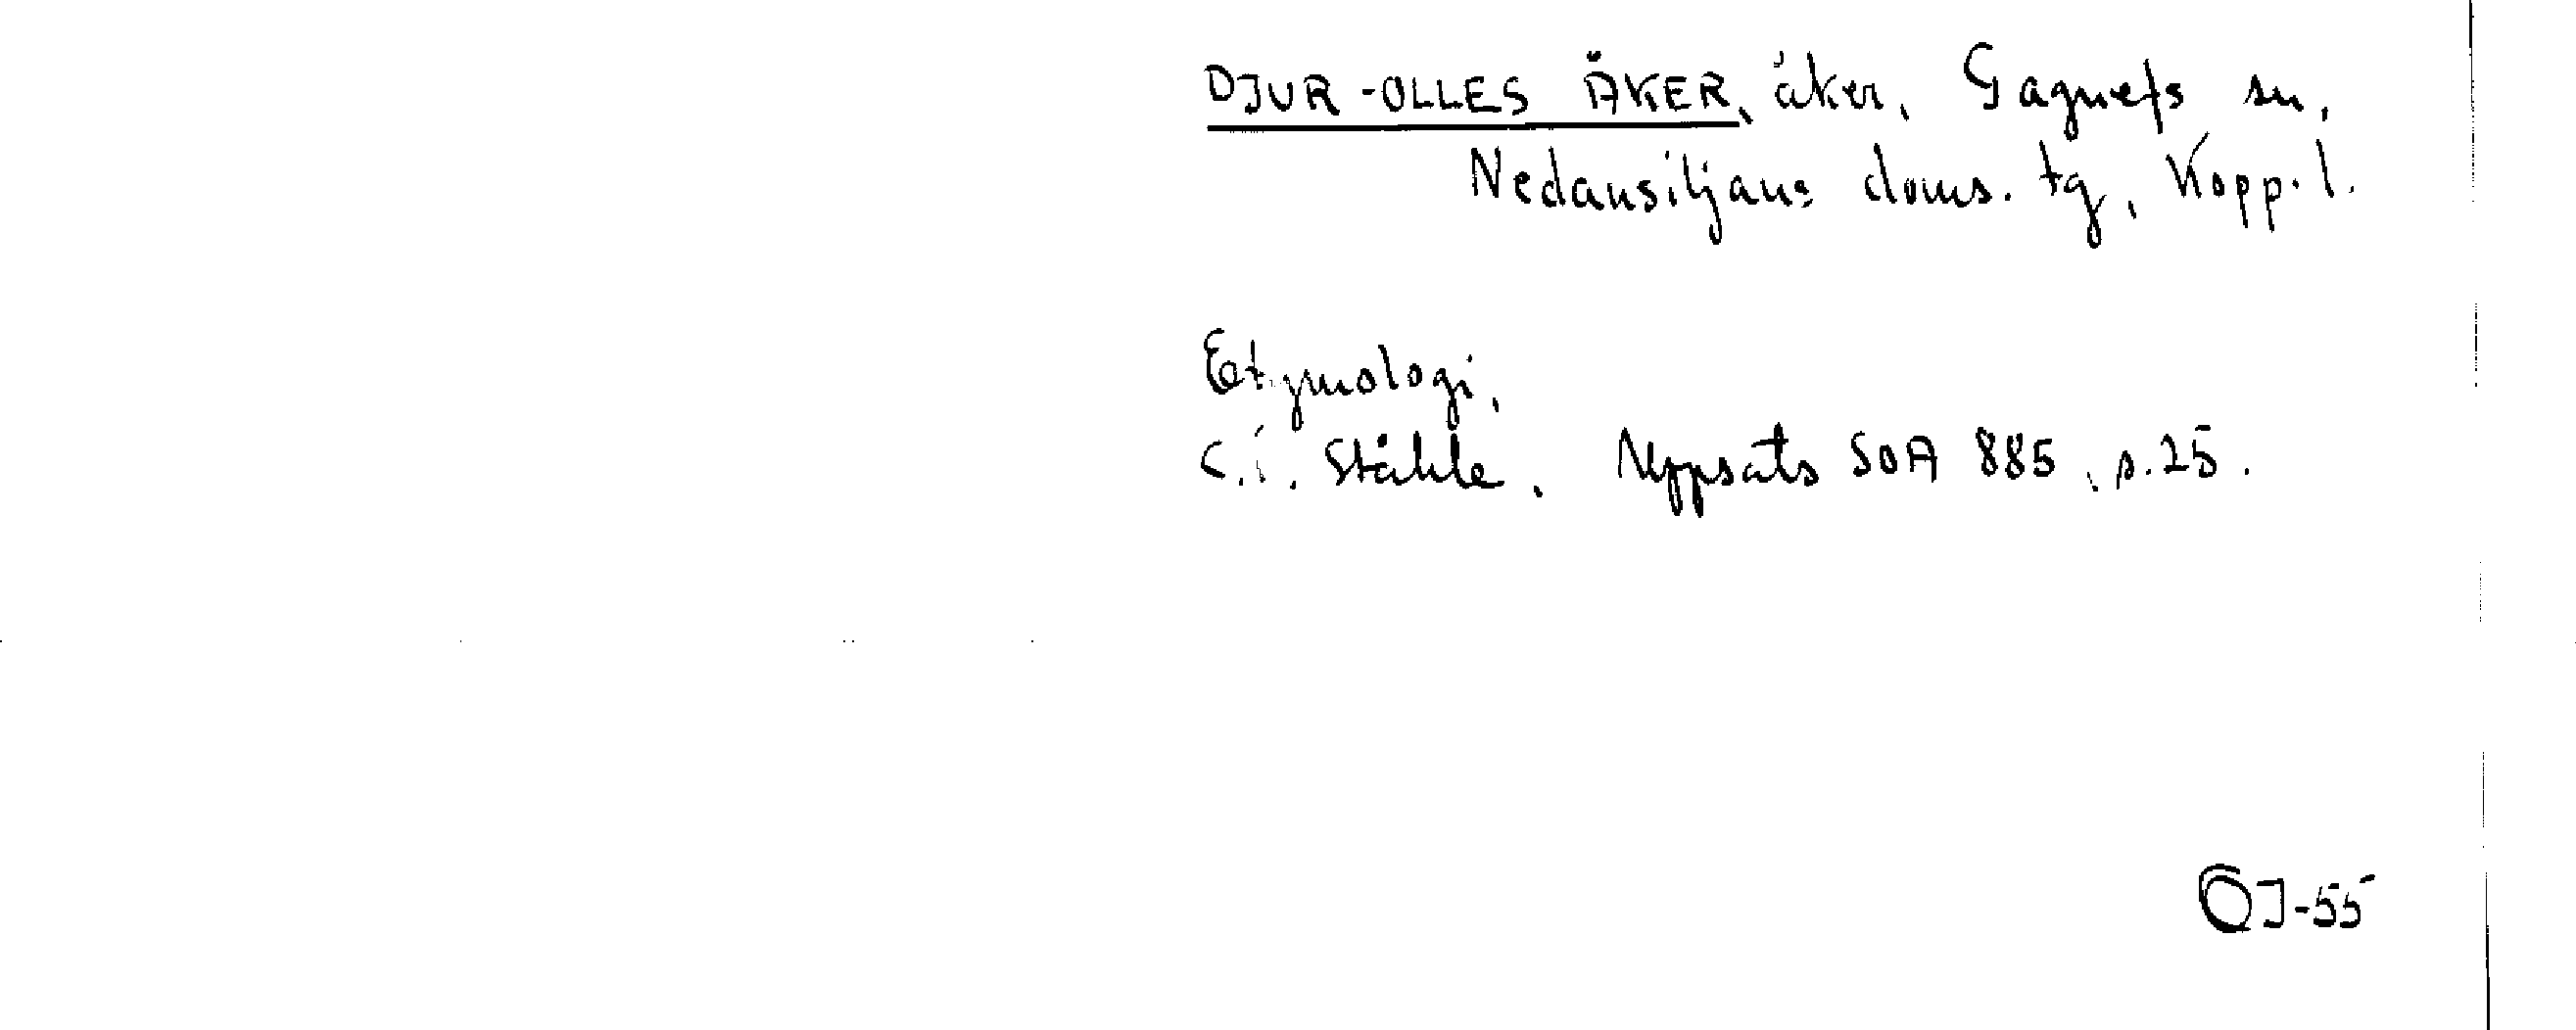 DJUR-OLLES ÅKER, åker, Gagnefs sn,
Nedansiljans doms. tg, Kopp. l.
Etymologi,
C.I. Ståhle. Uppsats SOA 885, s. 25.
OJ-55